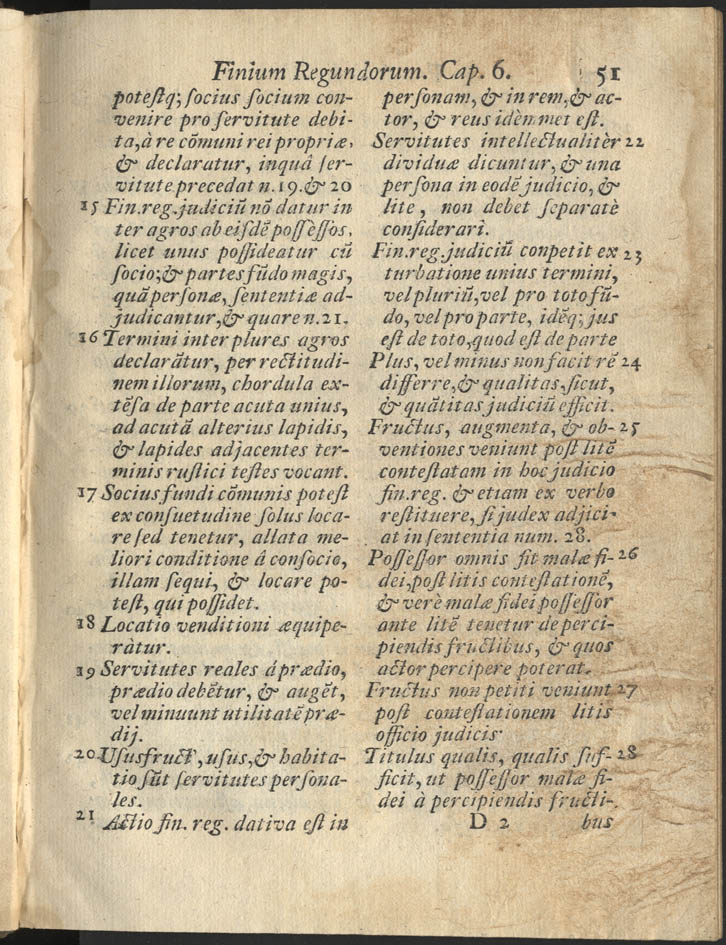 Finium Regundorum. Cap. 6. 51
potestq; socius socium con-
venire pro servitute debi-
ta, à re cōmuni rei propriæ,
& declaratur, inquâ ser-
vitute precedat n. 19. & 20
15 Fin. reg. judiciũ nõ datur in
ter agros ab eisdē possessos,
licet unus possideatur cũ
socio; & partes fũdo magis,
quã personæ, sententiæ ad-
judicantur, & quare n. 21.
16 Termini inter plures agros
declarãtur, per rectitudi-
nem illorum, chordula ex-
tẽsa de parte acuta unius,
ad acutã alterius lapidis,
& lapides adjacentes ter-
minis rustici testes vocant.
17 Socius fundi cõmunis potest
ex consuetudine solus loca-
re sed tenetur, allata me-
liori conditione á consocio,
illam sequi, & locare po-
test, qui possidet.
18 Locatio venditioni æquipe-
ràtur.
19 Servitutes reales á prædio,
prædio debẽtur, & augẽt,
vel minuunt utilitatẽ præ-
dij.
20 Ususfruct', usus, & habita-
tio sũt servitutes persona-
les.
21 Actio fin. reg. dativa est in
personam, & in rem, & ac-
tor, & reus idèm met est.
Servitutes intellectualitèr 22
dividuæ dicuntur, & una
persona in eodẽ judicio, &
lite, non debet separatè
considerari.
Fin. reg. judiciũ conpetit ex 23
turbatione unius termini,
vel pluriũ, vel pro toto fũ-
do, vel pro parte, idẽq; jus
est de toto, quod est de parte
Plus, vel minus non facit rẽ 24
differre, & qualitas, sicut,
& quãtitas judiciũ efficit.
Fructus, augmenta, & ob- 25
ventiones veniunt post litẽ
contestatam in hoc judicio
fin. reg. & etiam ex verbo
restituere, si judex adjici-
at in sententia num. 28.
Possessor omnis fit malæ fi- 26
dei, post litis contestationẽ,
& verè malæ fidei possessor
ante litẽ tenetur de perci-
piendis fructibus, & quos
actor percipere poterat.
Fructus non petiti veniunt 27
post contestationem litis
officio judicis.
Titulus qualis, qualis suf- 28
ficit, ut possessor malæ fi-
dei à percipiendis fructi-
D 2 bus